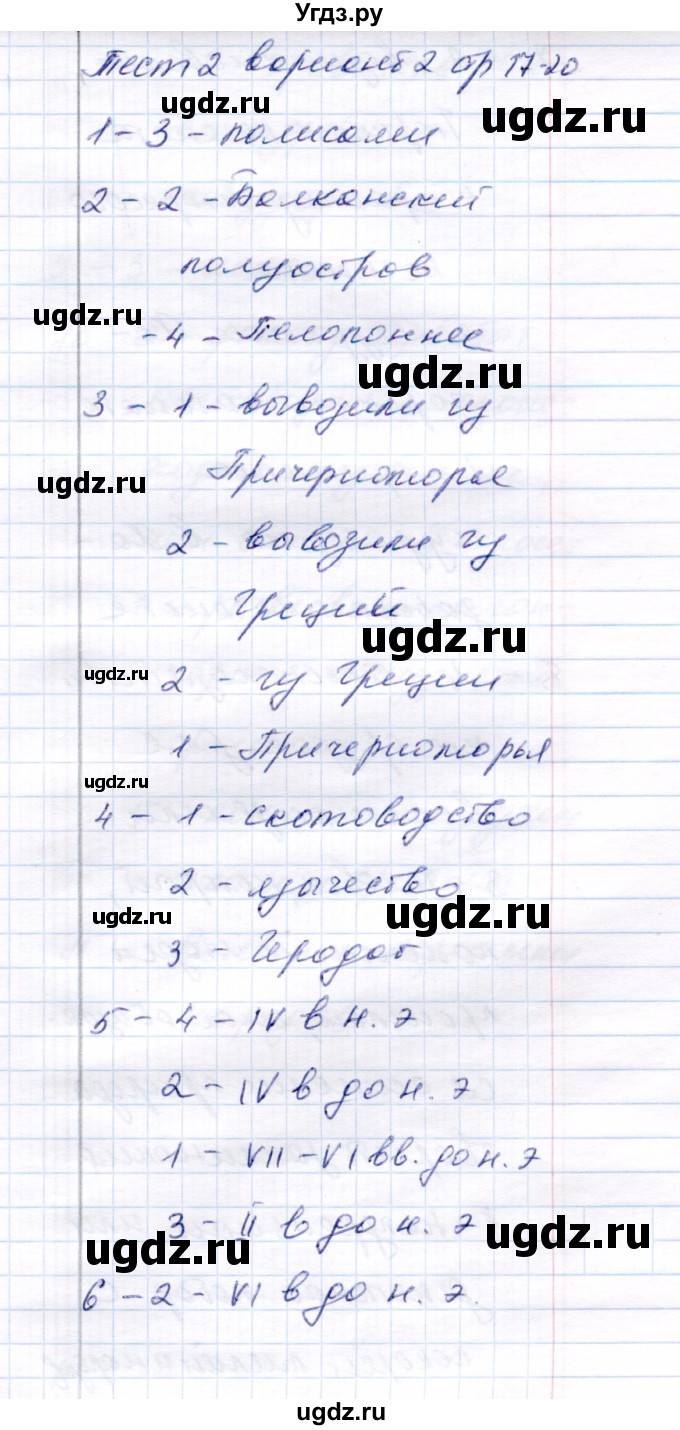 Угдз.ру
Тест 2 вариант 2 ср 17-20
ugdz.ru
ugdz.ru
1 - 3 - полисами
2 - 2 - Балканский
полуостров
ugdz.ru
- 4 - Пелопоннес
ugdz.ru
3 - 1 - вывозили из
Причерноморье
ugdz.ru
2 - вывозили из
Греций
ugdz.ru
ugdz.ru
2 - из Греции
1 - Причерноморья
ugdz.ru
4 - 1 - скотоводство
2 - язычество
ugdz.ru
ugdz.ru
3 - Геродот
5 - 4 - IV в н. э
2 - IV в до н. э
1 - VII - VI вв. до н. э
3 - II в до н. э
ugdz.ru
ugdz.ru
6 - 2 - VI в до н. э.
ugdz.ru